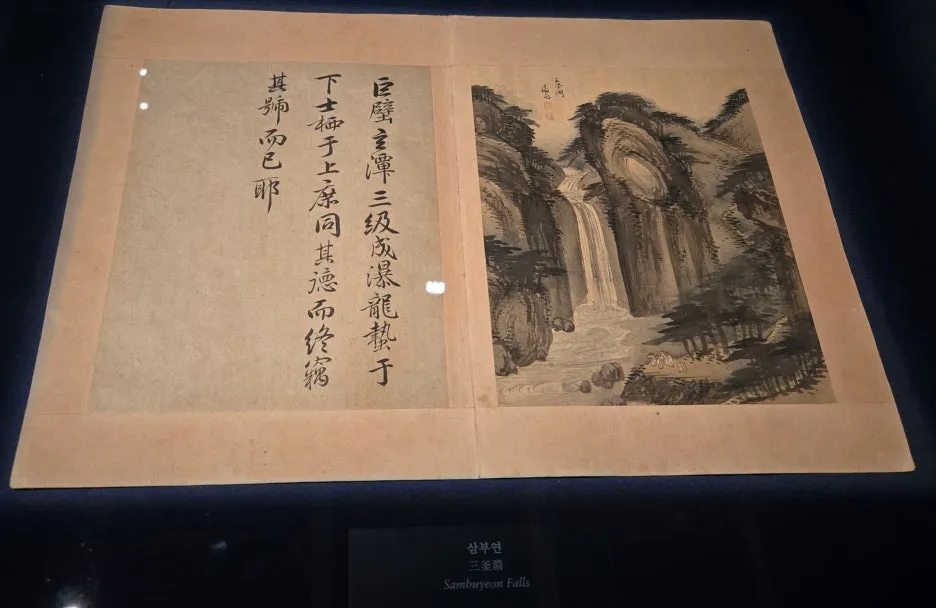 三釜淵
謙齋
巨壁玄潭三級成瀑龍蟄于
下士栖于上庶同其德而終竊
其號而已耶
삼부연
三釜淵
Sambuyeon Falls